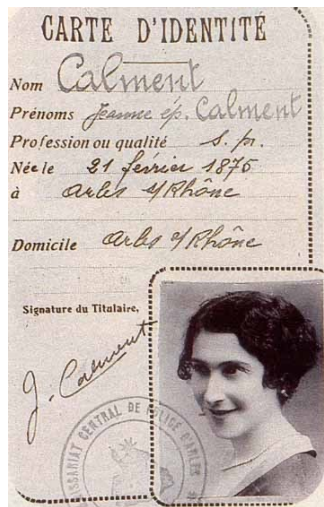 CARTE D'IDENTITÉ
Nom Calment
Prénoms Jeanne ép. Calment
Profession ou qualité s. p.
Née le 21 février 1875
à Arles s/Rhône
Domicile Arles s/Rhône
Signature du Titulaire,
J. Calment
SSARIAT CENTRAL DE POLICE D'ARLES